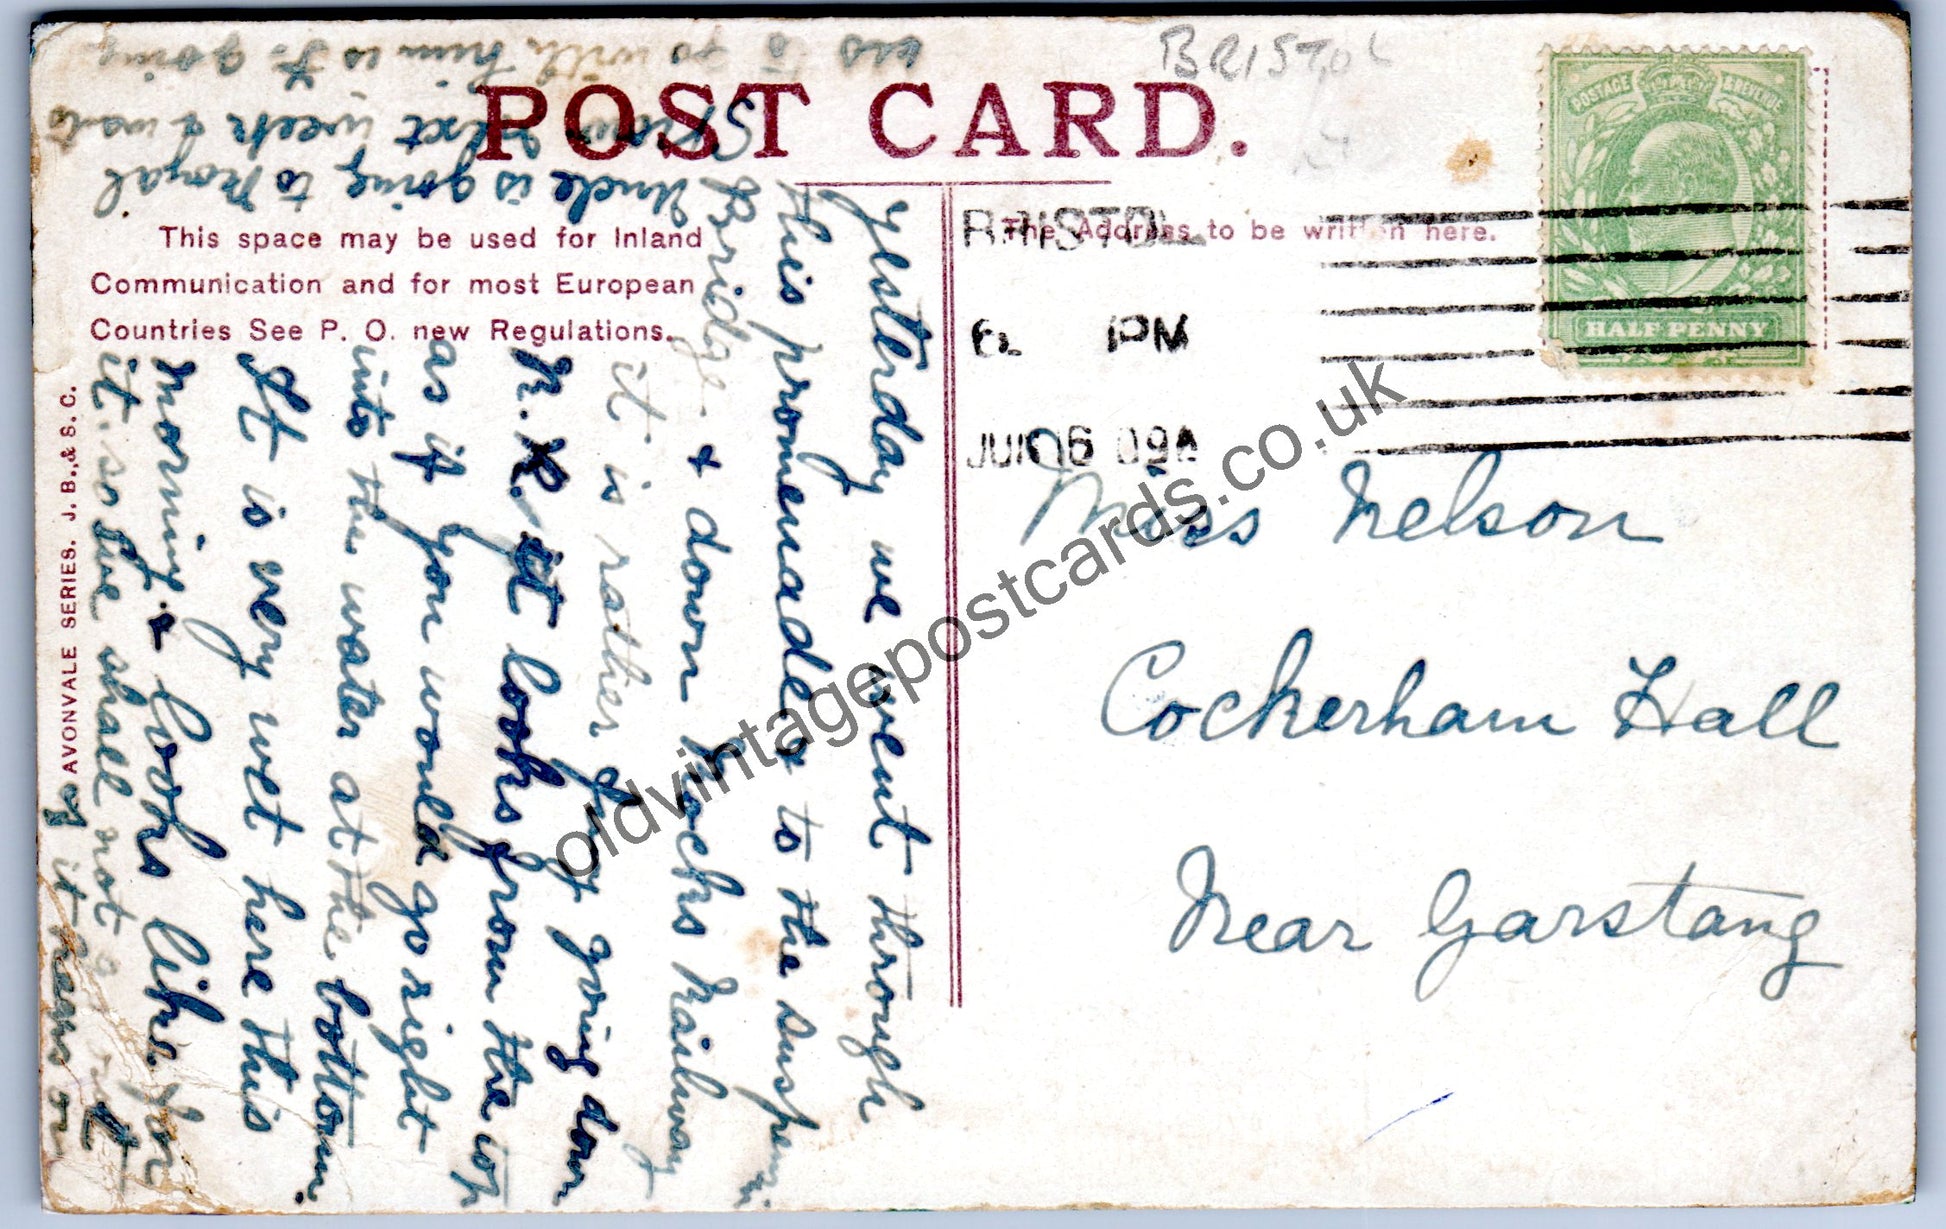 BRISTOL
POST CARD.
This space may be used for Inland
Communication and for most European
Countries See P. O. new Regulations.
The Address to be written here.
AVONVALE SERIES. J. B., & S. C.
POSTAGE & REVENUE
HALF PENNY
BRISTOL
6 PM
JUN 6 09
Miss Nelson
Cockerham Hall
Near Garstang
Yesterday we went through
this promenade & to the suspen
Bridge & down Rocks Railway
it is rather jolly going down
R. it looks from the top
as if you would go right
into the water at the bottom.
It is very wet here this
morning & looks like for
it. so we shall not
if it rains on
Uncle is going to Royal
Show next week & wants
us to go with him is to going
oldvintagepostcards.co.uk